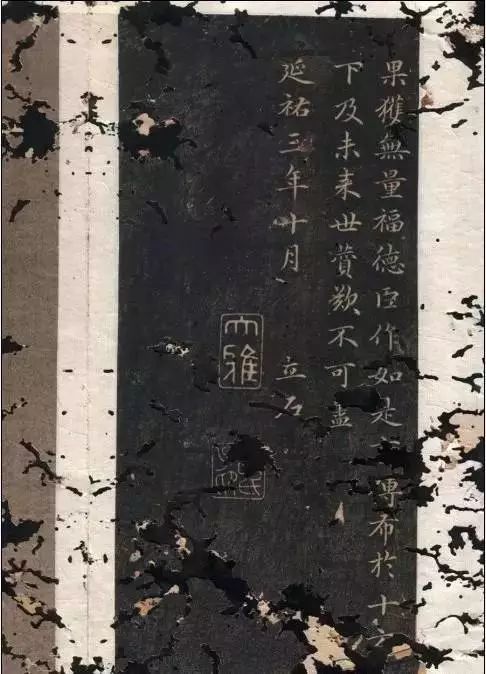 果獲無量福德臣作如是 傳布於十方
下及未来世賛歎不可盡
延祐三年十月 立石
大雅